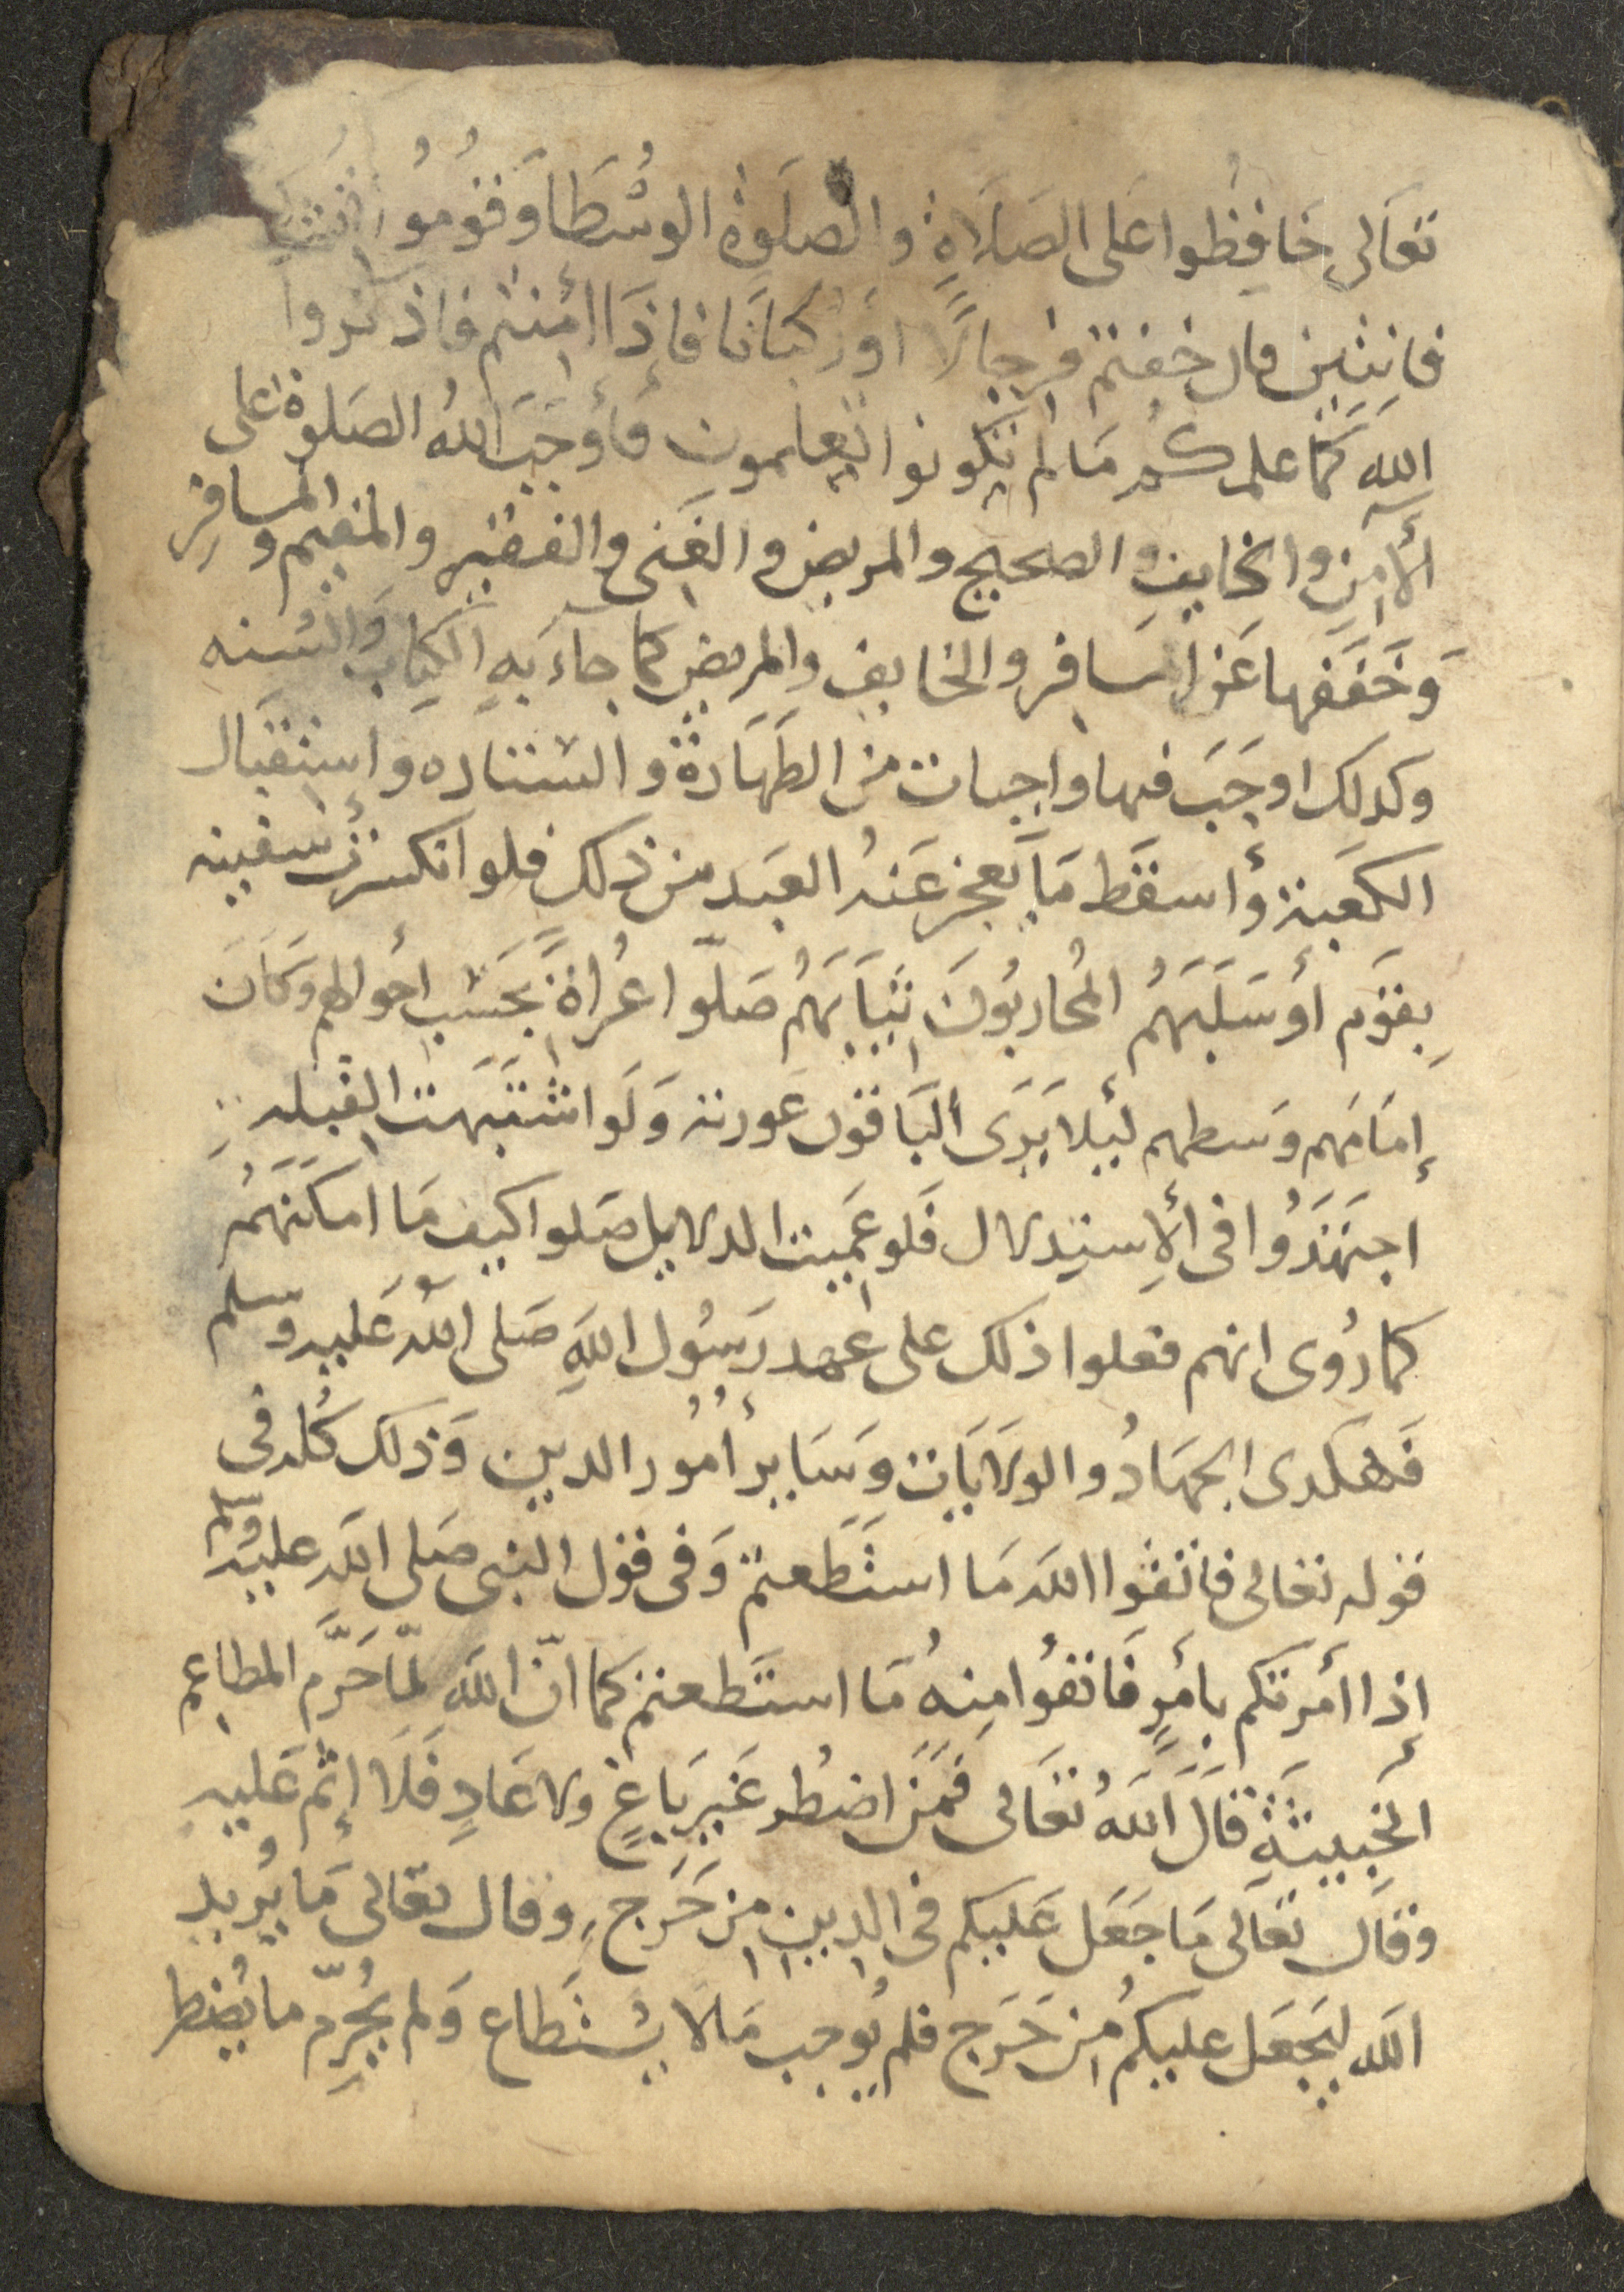 تعَالى حَافِظُوا عَلى الصَلَاةِ والصَلَوةِ الوسُطَا وَقوُمُوا
قانِتين فان خفتم فرِجالًا اوَرُكبَانًا فاِذَا اَمنِتُم فاذكروا
اللهَ كمَا علمكُم مَا لم تكونوا تعلمون فَأوُجَبَ اللهُ الصَلوة على
الآمِن والخايفِ والصحيح والمريض والغَنى والفقيرِ والمقيم والمسافِر
وَخَفَفها عَن المسافر والخايف والمريض كما جاءَ بهِ الكِتابُ وَالسُنه
وكدلك اوجَبَ فيها واجبات من الطَهَارَة والستتاره واستقبال
الكعَبة وأسقَط مَا يَعجز عَنهُ العبَد من ذلك فلو انكسرت سفينه
بِقوَم أوُ سَلَبَهمُ المُحاربُونَ ثيَابَهمُ صَلّوا عُراةً بحَسَب احُوالهم وَكاَنَ
إمَامَهم وَسطهم لئلا يَرَى البَاقون عَورته وَلَو اشتبَهت القبله
اجتهَدَوُا فى الاِستِدلال فَلو عَمِيت الدلايل صَلوا كيف مَا امكَنَهمُ
كما رُوى انهم فعلوا ذلك على عهد رَسُول اللهِ صَلى اللهُ عَليه وسلم
فَهكدى الجهَادُ والولَايَات وَسَاير أمُور الدين وَذلك كُله فى
قوله تعالى فاتقَوا الله مَا استَطعتم وَفى قول النبى صَلى الله عليه وسلم
إذا أمَرتكم بأمُرٍ فَاتوُا مِنهُ مَا استَطعتم كما انّ اللهَ لمّا حَرَّم المطاعِم
الخَبيثَةِ قاَلَ اَللهُ تعَالى فمَن اضطُر غَيرَ بَاغٍ ولا عَادٍ فَلَا إثُم عَليهِ
وقَال تعَالى مَا جَعَل عَليكم فى الدين مِن حَرَج وقال تعالى مَا يُريد
الله ليَجعَل عليكمُ مِن حَرَج فلم يُوجب مَالا يسُتَطاع وَلم يُحرِّم ما يُضطر